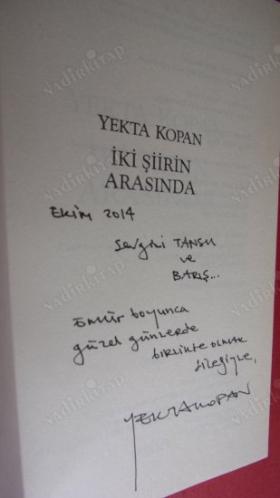 YEKTA KOPAN
İKİ ŞİİRİN
ARASINDA
Ekim 2014
Sevgili TANSU
ve
BARIŞ...
Ömür boyunca
güzel günlerde
birlikte olmak
dileğiyle,
YEKTA KOPAN
nadirkitap